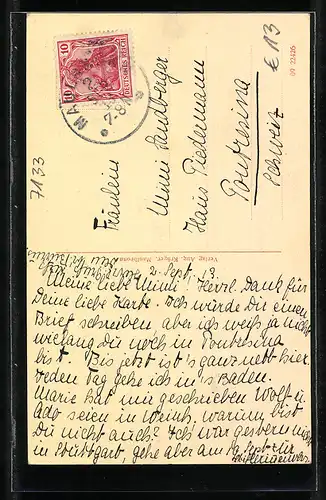 7133
10 DEUTSCHES REICH 10
MA
7-8
€ 13
09 22426
Fräulein
Mimi Landberger
Haus Piedermann
Pontresina
Schweiz
Verlag Aug. Krüger, Maulbronn
2. Sept. 13.
Meine liebe Mimi! Herzl. Dank für
Deine liebe Karte. Ich würde Dir einen
Brief schreiben aber ich weiß ja nicht
wielang Du noch in Pontresina
bist. Bis jetzt ist's ganz nett hier.
Jeden Tag gehe ich in's Baden.
Marie hat mir geschrieben Wolf u.
Ado seien in Weinh, warum bist
Du nicht auch? Ich war gestern nicht
in Stuttgart, gehe aber am Sept